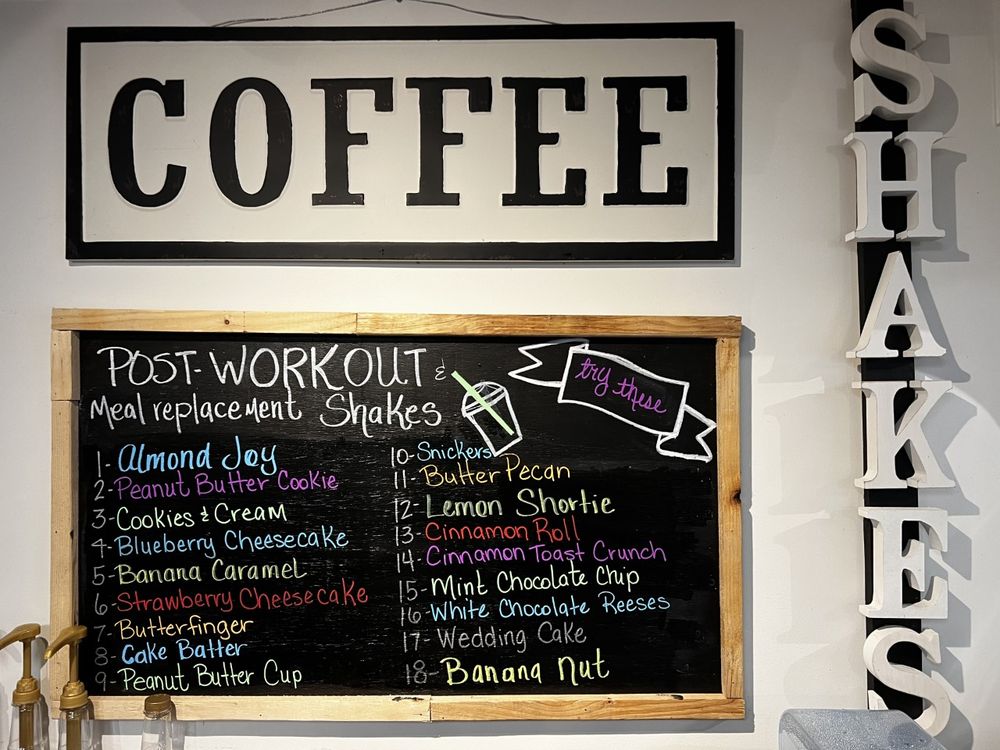 COFFEE
SHAKES
POST-WORKOUT &
Meal replacement Shakes
try these
1- Almond Joy
2- Peanut Butter Cookie
3- Cookies & Cream
4- Blueberry Cheesecake
5- Banana Caramel
6- Strawberry Cheesecake
7- Butterfinger
8- Cake Batter
9- Peanut Butter Cup
10- Snickers
11- Butter Pecan
12- Lemon Shortie
13- Cinnamon Roll
14- Cinnamon Toast Crunch
15- Mint Chocolate Chip
16- White Chocolate Reeses
17- Wedding Cake
18- Banana Nut